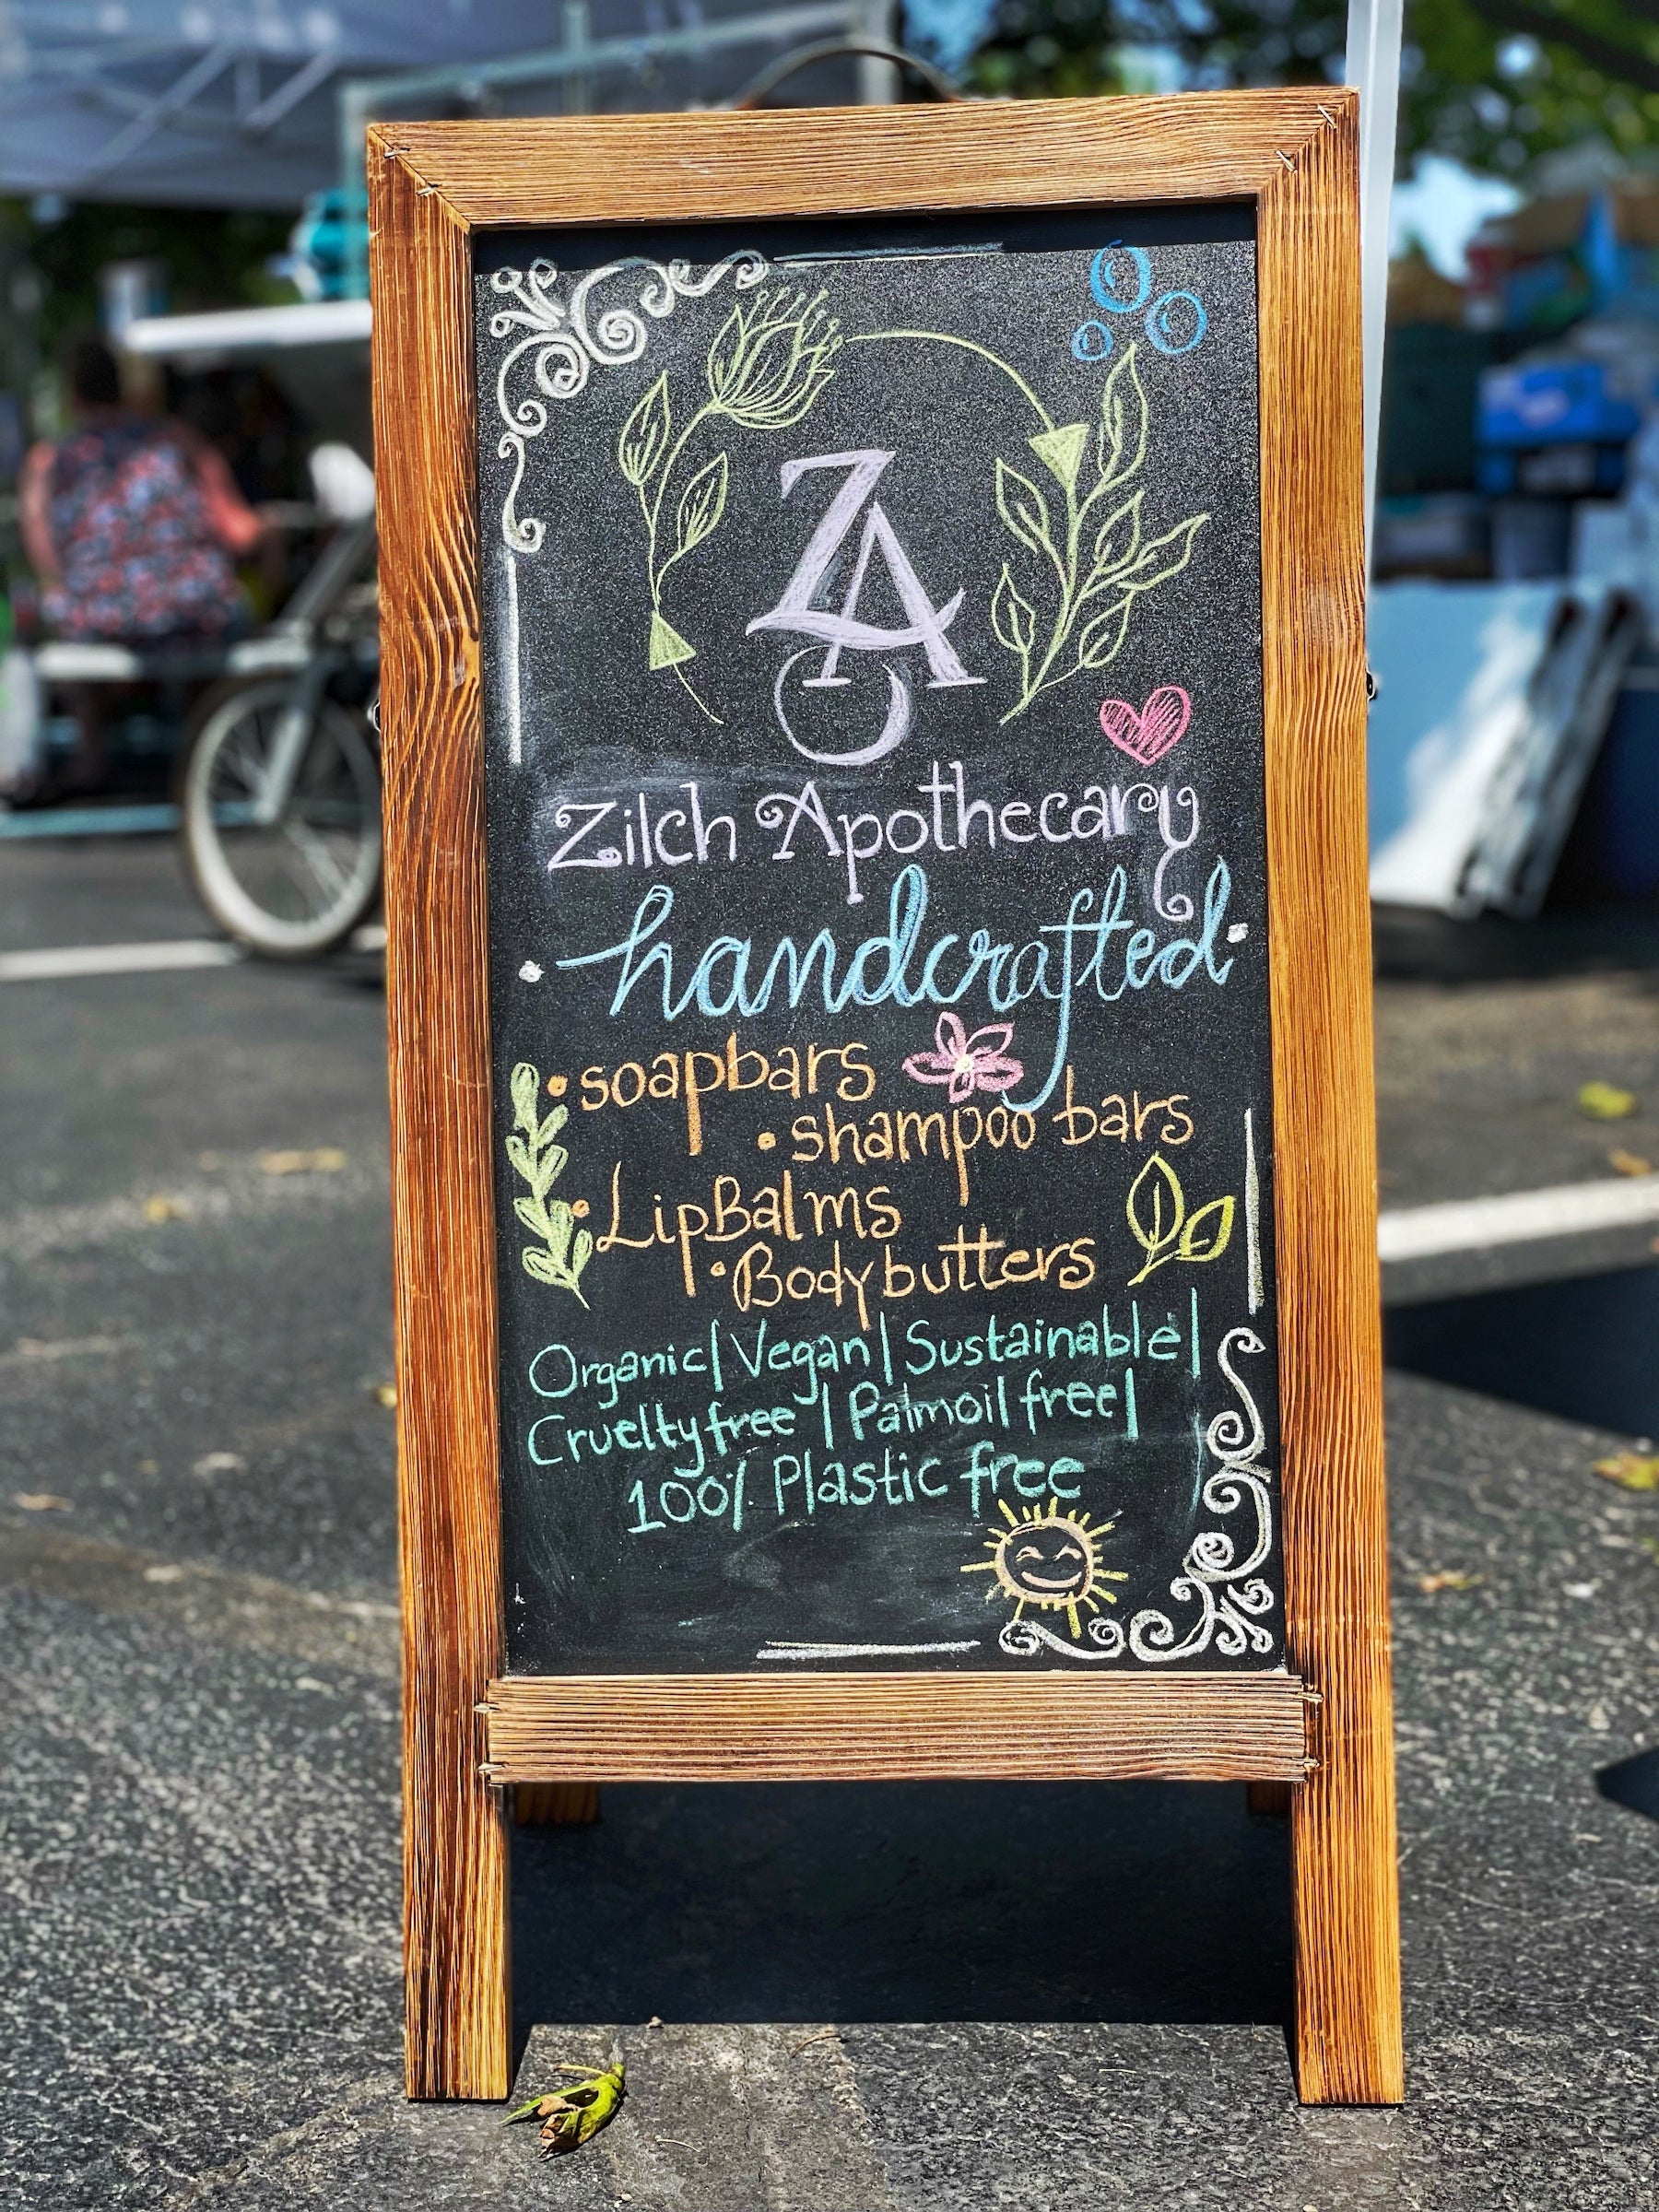 ZA
Zilch Apothecary
handcrafted
• soapbars
• shampoo bars
• LipBalms
• Bodybutters
Organic | Vegan | Sustainable |
Crueltyfree | Palmoil free |
100% Plastic free